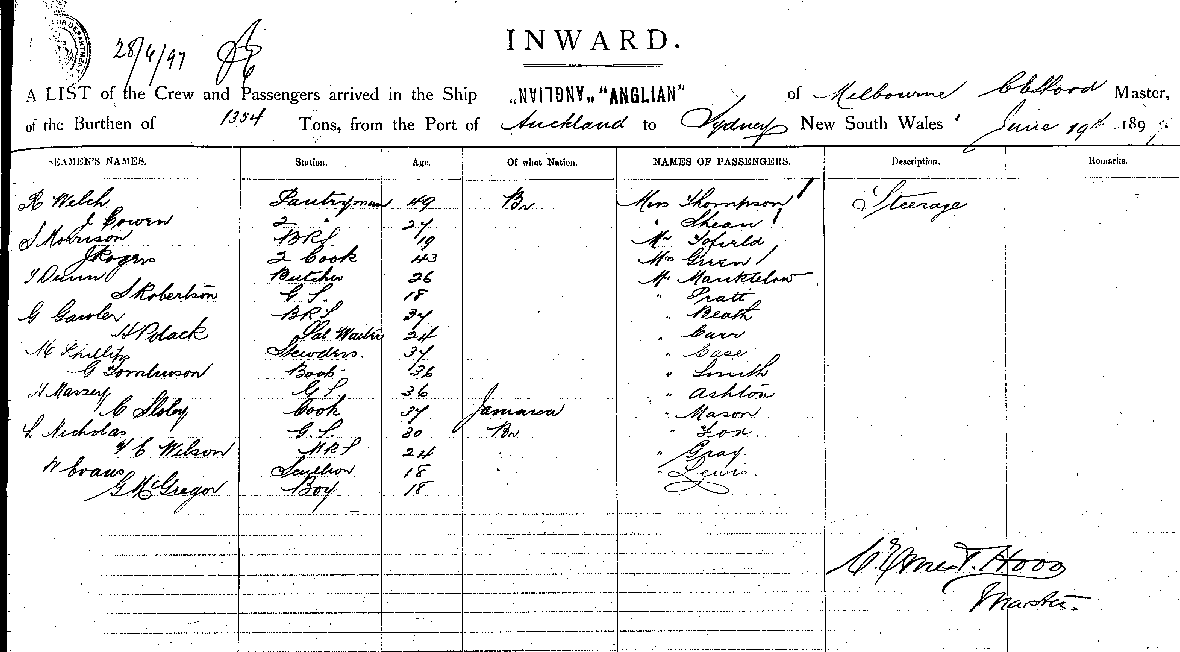 28/6/97
INWARD.
A LIST of the Crew and Passengers arrived in the Ship "ANGLIAN" "ANGLIAN" of Melbourne Master,
of the Burthen of 1354 Tons, from the Port of Auckland to Sydney New South Wales June 19th 1897
SEAMEN'S NAMES. Station. Age. Of what Nation. NAMES OF PASSENGERS. Description. Remarks.
R Welch Pantryman 49 Br Miss Thompson Steerage
J. Cowen 2 " 27 " Shean
S Morrison BRS 19 Mr Tofield
J Rogers 2 Cook 43 Mrs Green
T Dunn Butcher 26 Mr Manktelow
S Robertson G.S. 18 " Pratt
G Gawler BRS 37 " Heath
H Polack Sal Waiter 24 " Carr
M Phillips Stewdess. 37 " Case
G Tomlinson Book 36 " Smith
H Massey G.S. 36 " Ashton
C Cook 37 Jamaica " Mason
S. Nicholas G.S. 30 Br " Fox
C Wilson MRS 24 " Gray
W Evans Scullion 18 " Lewis
G McGregor Boy 18
Master.